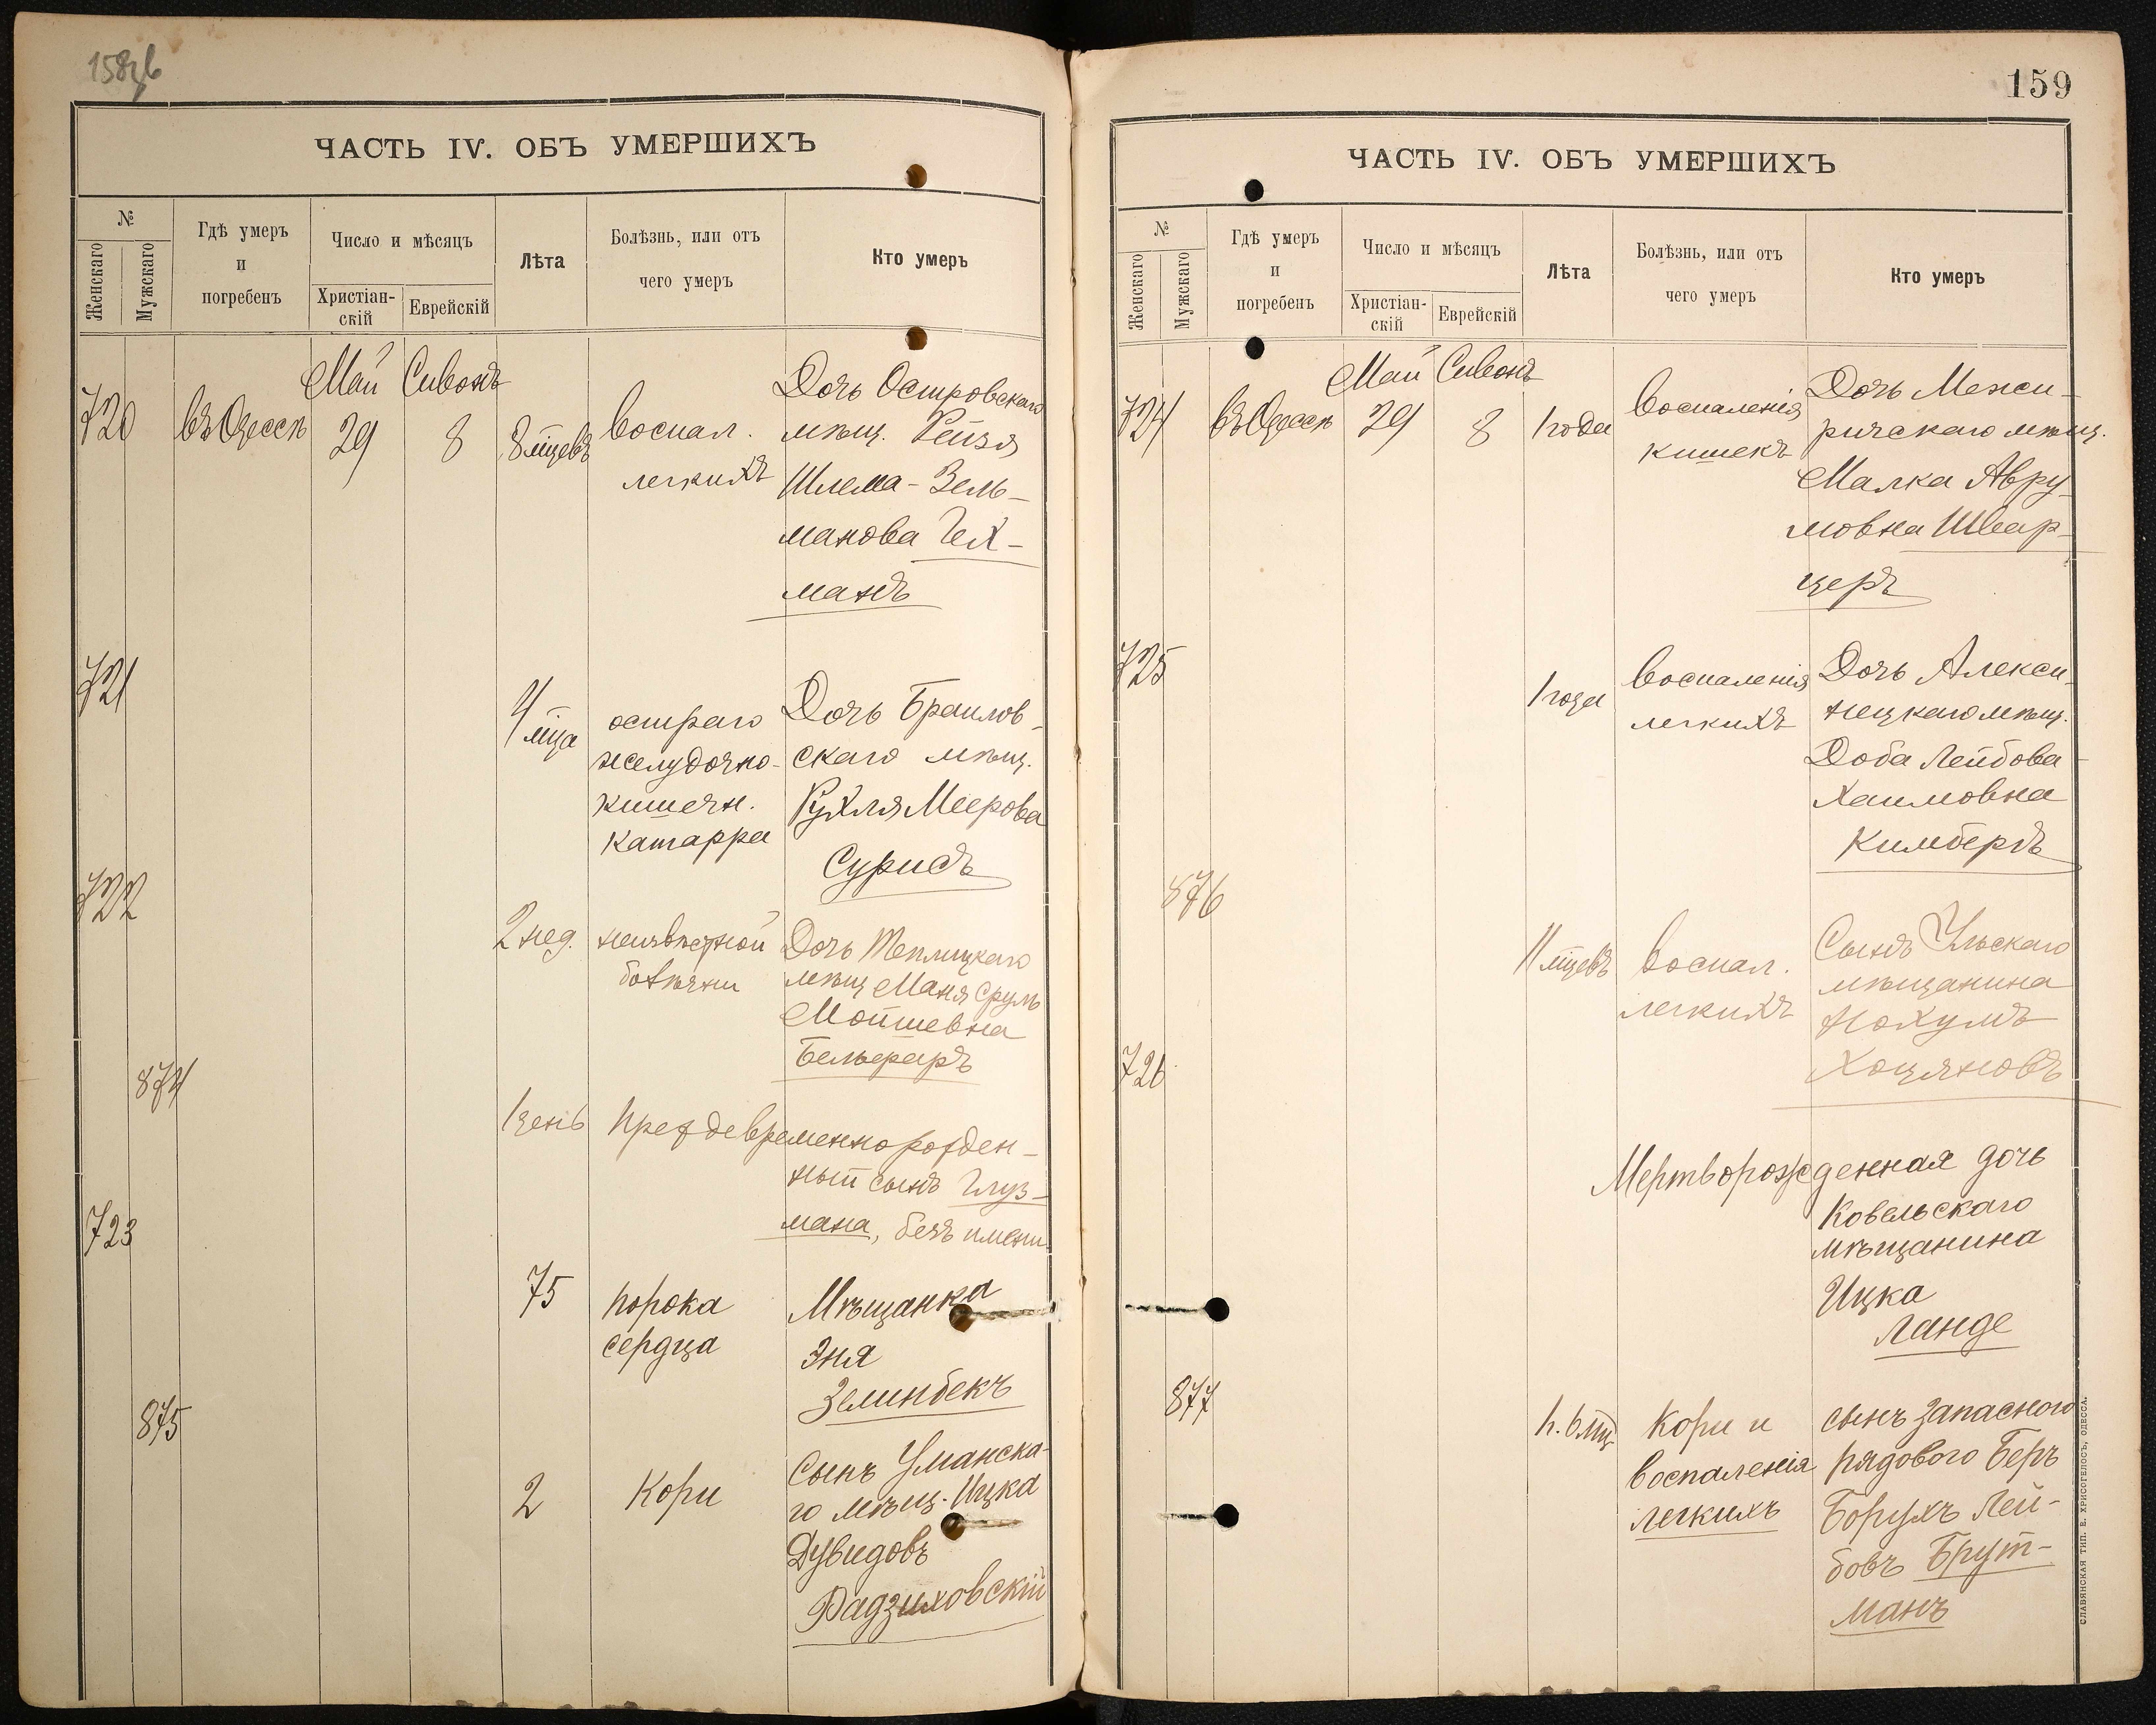 158 об
ЧАСТЬ IV. ОБЪ УМЕРШИХЪ
№
Женскаго
Мужскаго
Гдѣ умеръ
и
погребенъ
Число и мѣсяцъ
Христіан-
скій
Еврейскій
Лѣта
Болѣзнь, или отъ
чего умеръ
Кто умеръ
Май Сивонъ
720 въ Одессѣ 29 8 8 мцевъ
воспал.
легкихъ
Дочь Островскаго
мѣщ. Рейзя
Шлема-Зель-
манова Гех-
манъ
721
4 мца
остраго
желудочно-
кишечн.
катарра
Дочь Браилов-
скаго мѣщ.
Рухля Меерова
Сурисъ
722
2 нед.
неизвѣстной
болѣзни
Дочь Теплицкаго
мѣщ Маня Сруль
Мойшевна
Бельферъ
874
1 день
Преждевременно рожден-
ный сынъ Глуз-
мана, безъ имени
723
75
порока
сердца
Мѣщанка
Эня
Зелинбекъ
875
2
Кори
Сынъ Уманска-
го мѣщ. Ицка
Дувидовъ
Радзиховскій
159
ЧАСТЬ IV. ОБЪ УМЕРШИХЪ
№
Женскаго
Мужскаго
Гдѣ умеръ
и
погребенъ
Число и мѣсяцъ
Христіан-
скій
Еврейскій
Лѣта
Болѣзнь, или отъ
чего умеръ
Кто умеръ
Май Сивонъ
724 въ Одессѣ 29 8 1 года
воспаленія
кишекъ
Дочь Межи-
ричскаго мѣщ.
Малка Авру-
мовна Швар-
церъ
725
1 года
воспаленія
легкихъ
Дочь Алекси-
нецкаго мѣщ.
Доба Лейбова-
Хаимовна
Кимберъ
876
11 мцевъ
воспал.
легкихъ
Сынъ
мѣщанина
Нохумъ
726
Мертворожденная дочь
Ковельскаго
мѣщанина
Ицка
Ланде
877
Кори и
воспаленія
легкихъ
сынъ запасного
рядового Беръ
Борухъ Лей-
бовъ Брут-
манъ
СЛАВЯНСКАЯ ТИП. Е. ХРИСОГЕЛОСЪ, ОДЕССА.